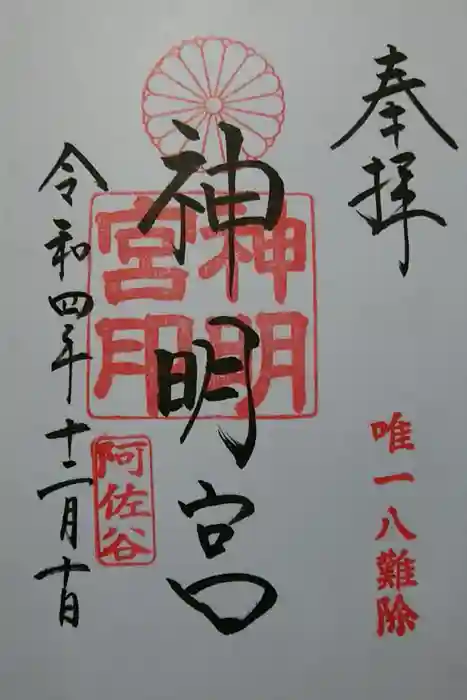 奉拝
唯一八難除
神明宮
神明
宮印
令和四年十二月十日
阿佐谷